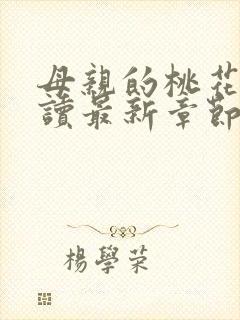 母親的桃花
讀最新章節
楊學荣